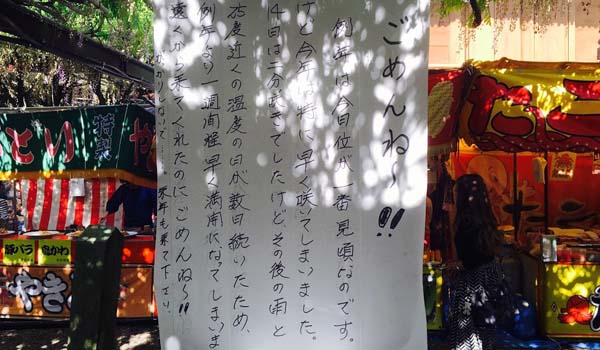 ごめんね〜!!
例年は今日位が一番見頃なのです。
けど今年は特に早く咲いてしまいました。
14日は二分咲きでしたけど、その後の雨と
度近くの温度の日が数日続いたため、
例年より一週間程早く満開になってしまいま
遠くから来てくれたのにごめんね〜!!
がっかりしないで……。来年も来て下さい。
とい
特製
や
豚バラ
鳥かわ
やき
たこ